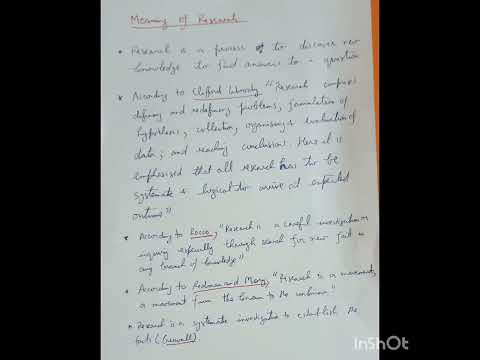 Meaning of Research
• Research is a process of to discover new
knowledge to find answers to a question
• According to Clifford Woody "Research comprises
defining and redefining problems, formulation of
hypothesis, collection, organising & evaluation of
data; and reaching conclusion. Here it is
emphasised that all research has to be
systematic & logical to arrive at expected
outcome"
• According to Rocco, "Research is a careful investigation or
inquiry especially through search for new fact in
any branch of knowledge"
• According to Redman and Mory, "Research is a movement,
a movement from the known to the unknown"
• Research is a systematic investigation to establish the
facts (
InShOt